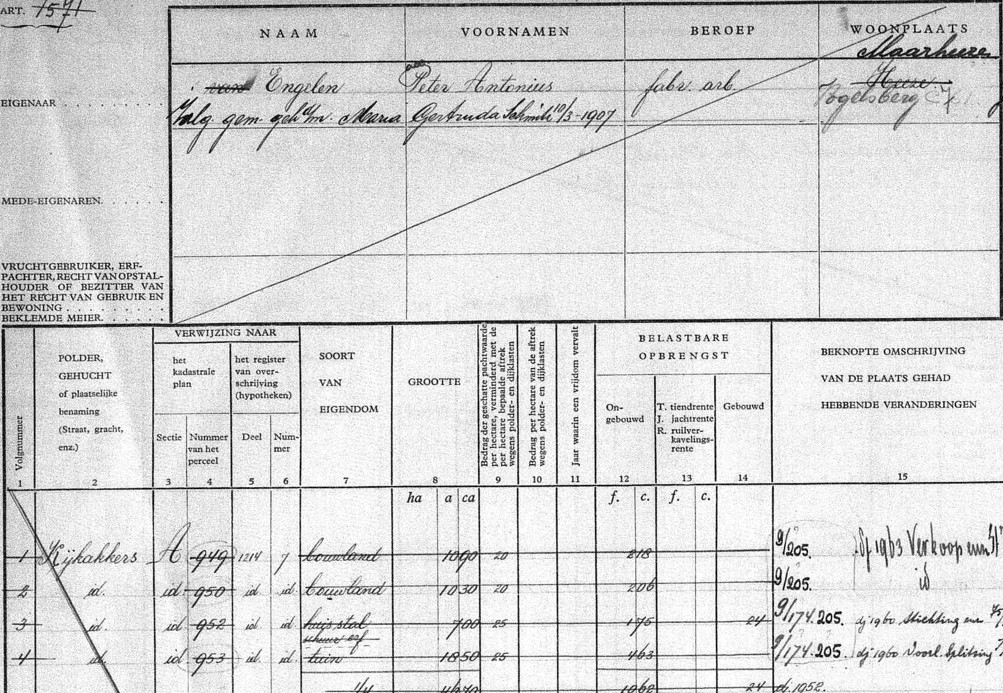 ART. 1571
NAAM VOORNAMEN BEROEP WOONPLAATS
Maarheeze
EIGENAAR . . . . . . . . van Engelen Peter Antonius fabr. arb. Heeze
Vogelsberg C 7
Valg. gem. geh. m. Maria Gertruda Schmitz 10/3-1907
MEDE-EIGENAREN. . . . . .
VRUCHTGEBRUIKER, ERF-
PACHTER, RECHT VAN OPSTAL-
HOUDER OF BEZITTER VAN
HET RECHT VAN GEBRUIK EN
BEWONING . . . . . . . .
BEKLEMDE MEIER. . . . . .
Volgnummer
POLDER,
GEHUCHT
of plaatselijke
benaming
(Straat, gracht,
enz.)
VERWIJZING NAAR
het
kadastrale
plan
het register
van over-
schrijving
(hypotheken)
Sectie Nummer
van het
perceel
Deel Num-
mer
SOORT
VAN
EIGENDOM
GROOTTE
Bedrag der geschatte pachtwaarde
per hectare, verminderd met de
per hectare bepaalde aftrek
wegens polder- en dijklasten
Bedrag per hectare van de aftrek
wegens polder- en dijklasten
Jaar waarin een vrijdom vervalt
BELASTBARE
OPBRENGST
On-
gebouwd
T. tiendrente
J. jachtrente
R. ruilver-
kavelings-
rente
Gebouwd
BEKNOPTE OMSCHRIJVING
VAN DE PLAATS GEHAD
HEBBENDE VERANDERINGEN
1 2 3 4 5 6 7 8 9 10 11 12 13 14 15
ha a ca f. c. f. c.
1 Kijkakkers A 949 1214 7 bouwland 10 90 20 218 9/205. dj 1963 Verkoop
2 id. id. 950 id. id. bouwland 10 30 20 206 9/205. id
3 id. id. 952 id. id. huis stal 7 00 25 175 24 9/174.205. dj 1960 Stichting
schuur erf
4 id. id. 953 id. id. tuin 18 50 25 463 9/174.205. dj 1960 Voorl. Splitsing
1062 24 dj. 1952.